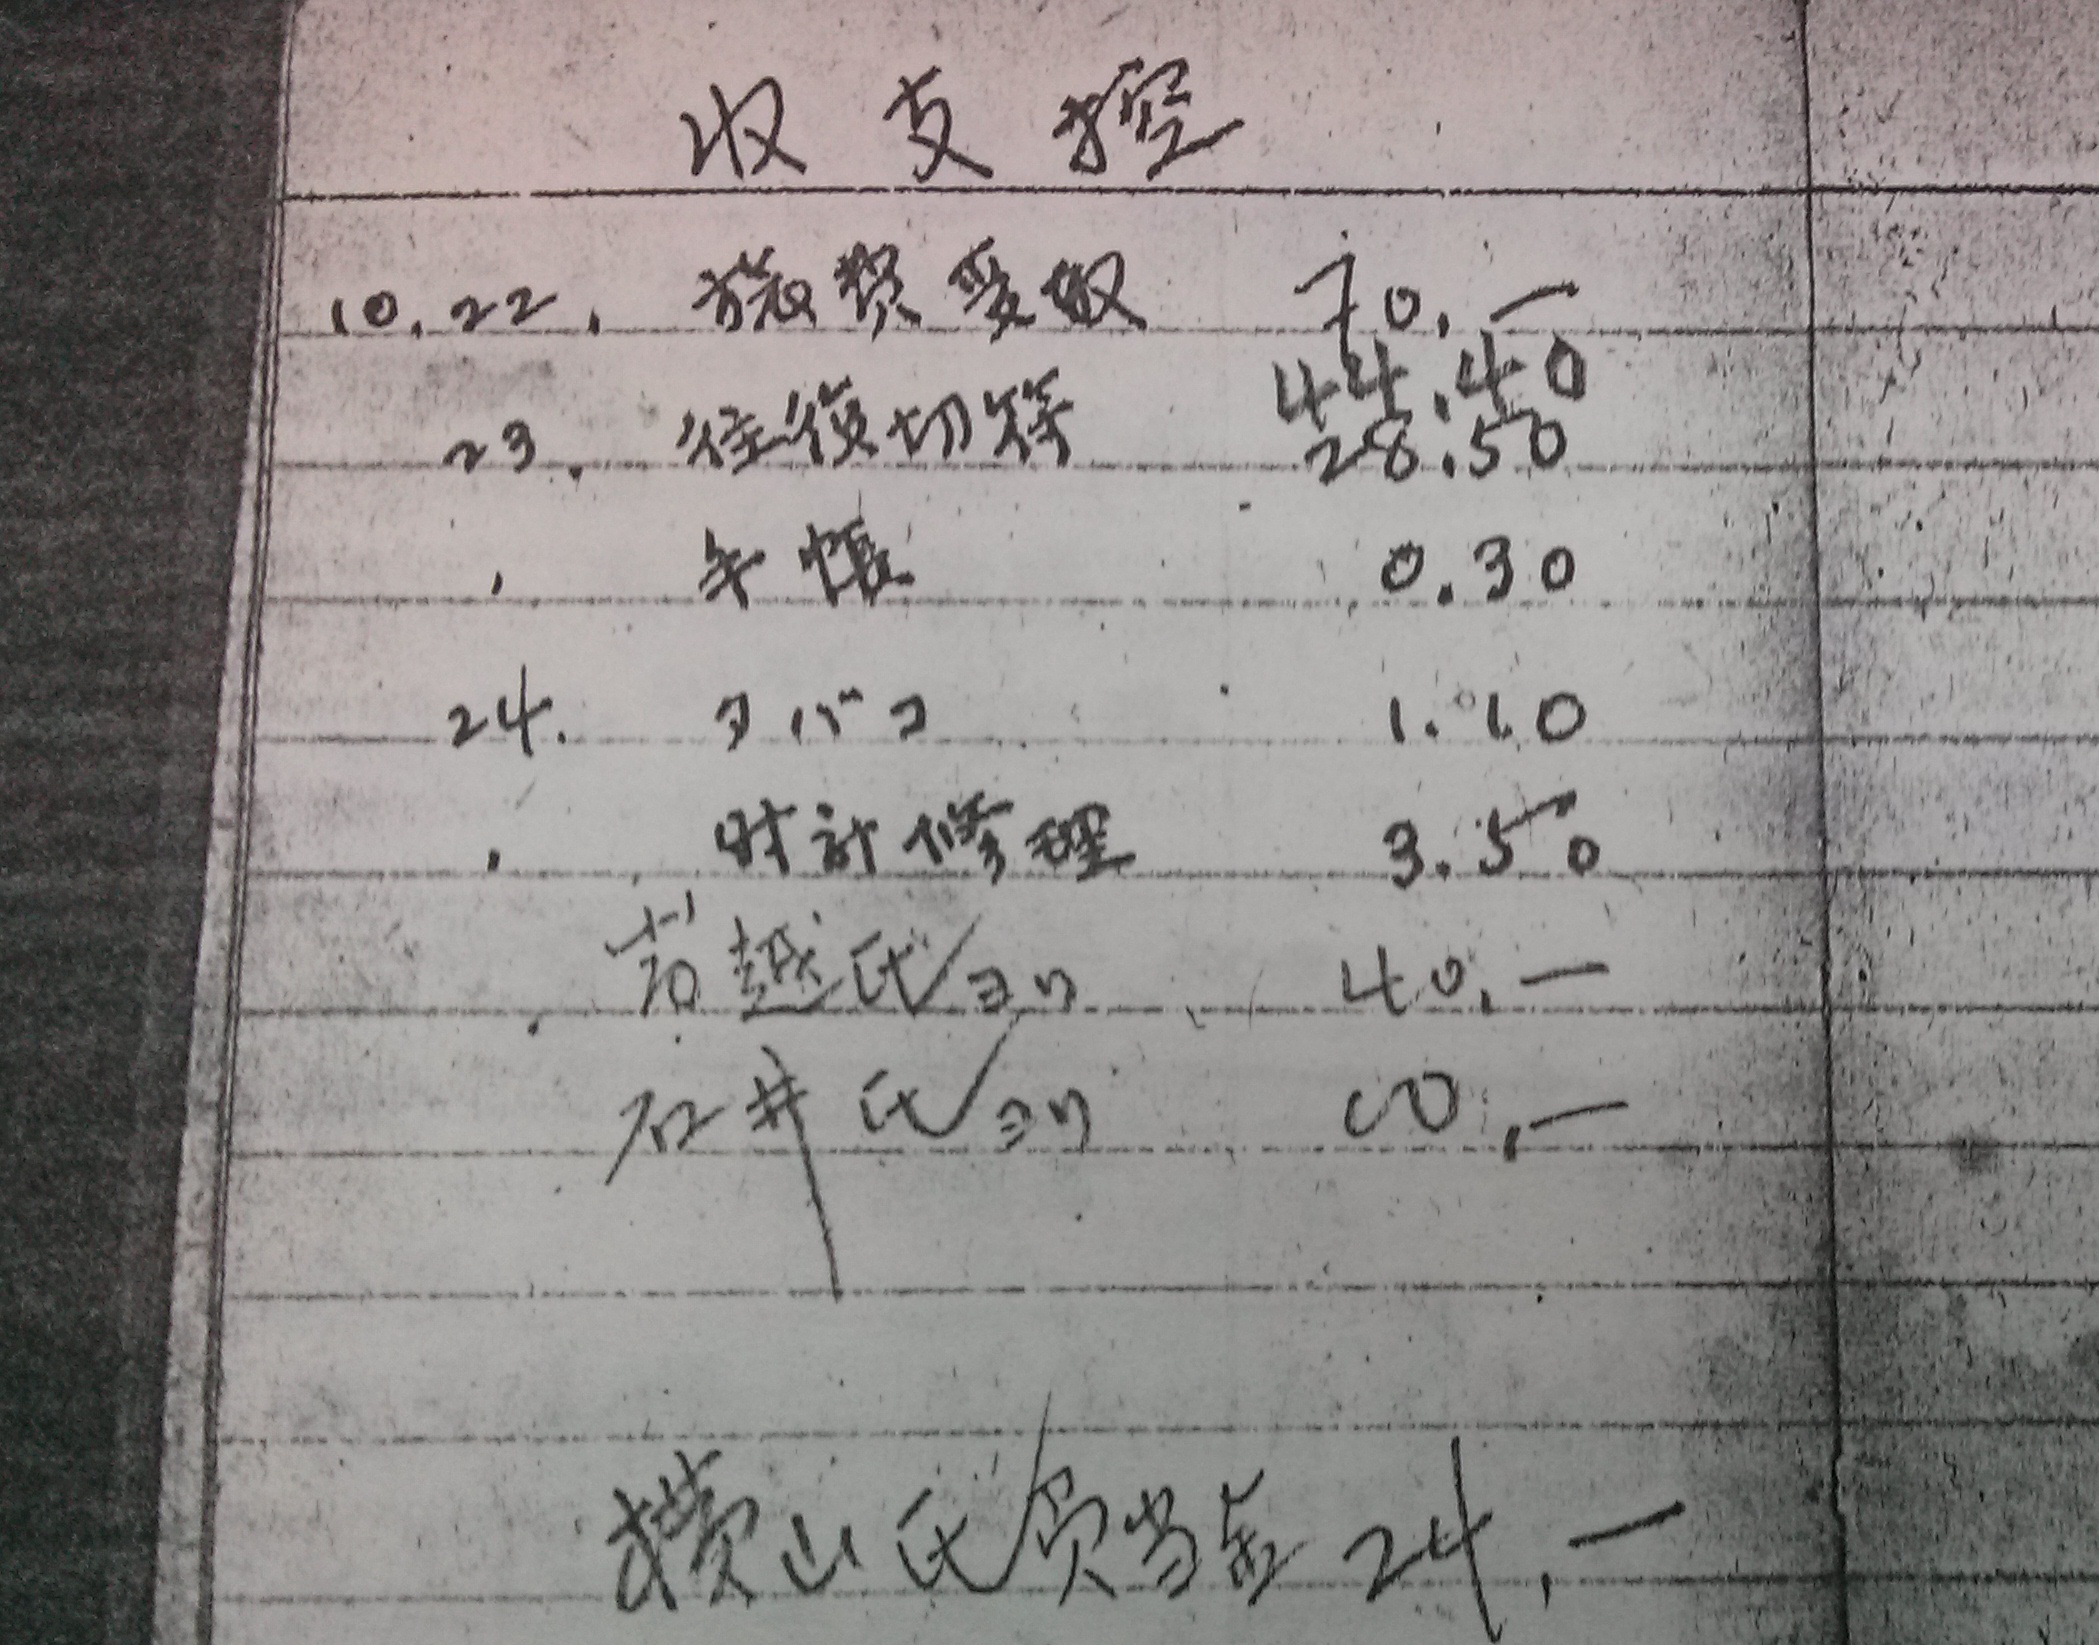 収支控
10.22. 旅費受取 70.—
44.40
23. 往復切符 28.50
〃 手帳 0.30
24. タバコ 1.10
〃 時計修理 3.50
〃 若越氏ヨリ 40.—
石井氏ヨリ 00.—
横山氏 負当金 24.—